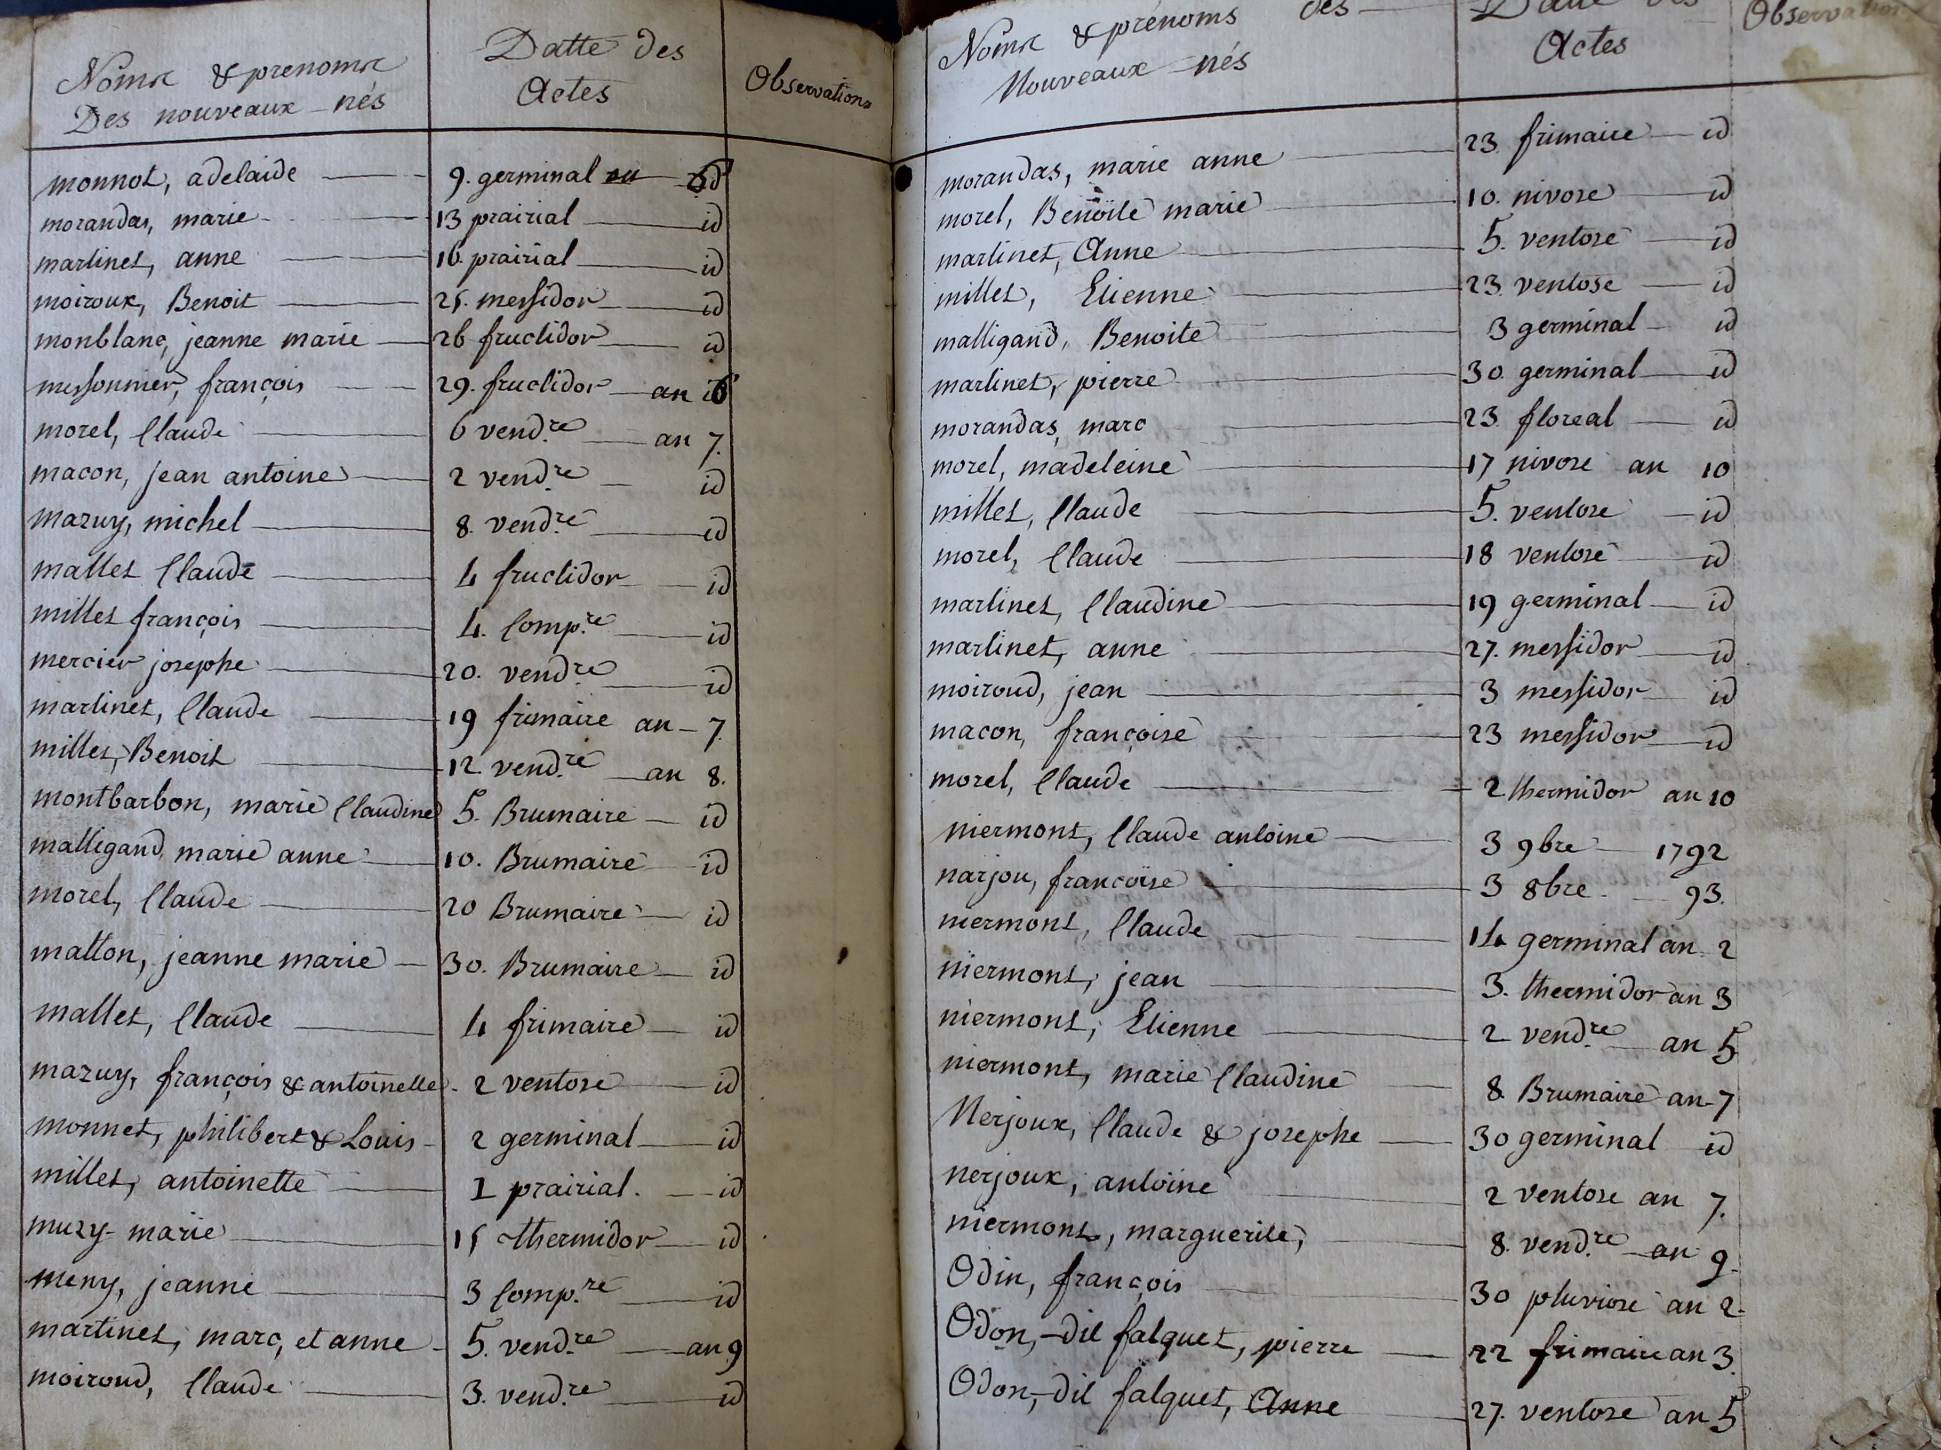 Noms & prenoms
Des nouveaux-nés
Datte des
Actes
Observations
monnot, adelaide 9. germinal
morandas, marie 13 prairial id
martinet, anne 16. prairial id
moiroux, Benoit 25. messidor id
monblanc, jeanne marie 26 fructidor id
messonnier, françois 29. fructidor an 6
morel, Claude 6 vend.re an 7.
macon, jean antoine 2 vend.re id
mazuy, michel 8. vend.re id
mallet Claude 4 fructidor id
millet françois 4. Comp.re id
mercier josephe 20. vend.re id
martinet, Claude 19 frimaire an 7
millet, Benoit 12. vend.re an 8.
montbarbon, marie Claudine 5. Brumaire id
malligand, marie anne 10. Brumaire id
morel, Claude 20 Brumaire id
matton, jeanne marie 30. Brumaire id
mallet, Claude 4 frimaire id
mazuy, françois & antoinette 2 ventose id
monnet, philibert & Louis 2 germinal id
millet, antoinette 1 prairial. id
muzy marie 15 thermidor id
meny, jeanne 3 Comp.re id
martinet, marc, et anne 5. vend.re an 9
moiroud, Claude 3. vend.re id
Noms & prénoms des
Nouveaux-nés
Datte des
Actes
Observations
morandas, marie anne 23. frimaire id
morel, Benoite marie 10. nivose id
martinet, Anne 5. ventose id
millet, Etienne 23. ventose id
malligand, Benoite 3 germinal id
martinet, pierre 30. germinal id
morandas, marc 23. floreal id
morel, madeleine 17 nivose an 10
millet, Claude 5. ventose id
morel, Claude 18 ventose id
martinet, Claudine 19 germinal id
martinet, anne 27. messidor id
moiroud, jean 3 messidor id
macon, françoise 23 messidor id
morel, Claude 2 thermidor an 10
niermont, Claude antoine 3 9bre 1792
narjou, françoise 3 8bre 93.
niermont, Claude 14 germinal an 2
niermont, jean 3. thermidor an 3
niermont, Etienne 2 vend.re an 5
niermont, marie Claudine 8. Brumaire an 7
Nerjoux, Claude & josephe 30 germinal id
nerjoux, antoine 2 ventose an 7.
niermont, marguerite, 8. vend.re an 9.
Odin, françois 30 pluviose an 2.
Odon, dit falquet, pierre 22 frimaire an 3
Odon, dit falquet, Anne 27. ventose an 5